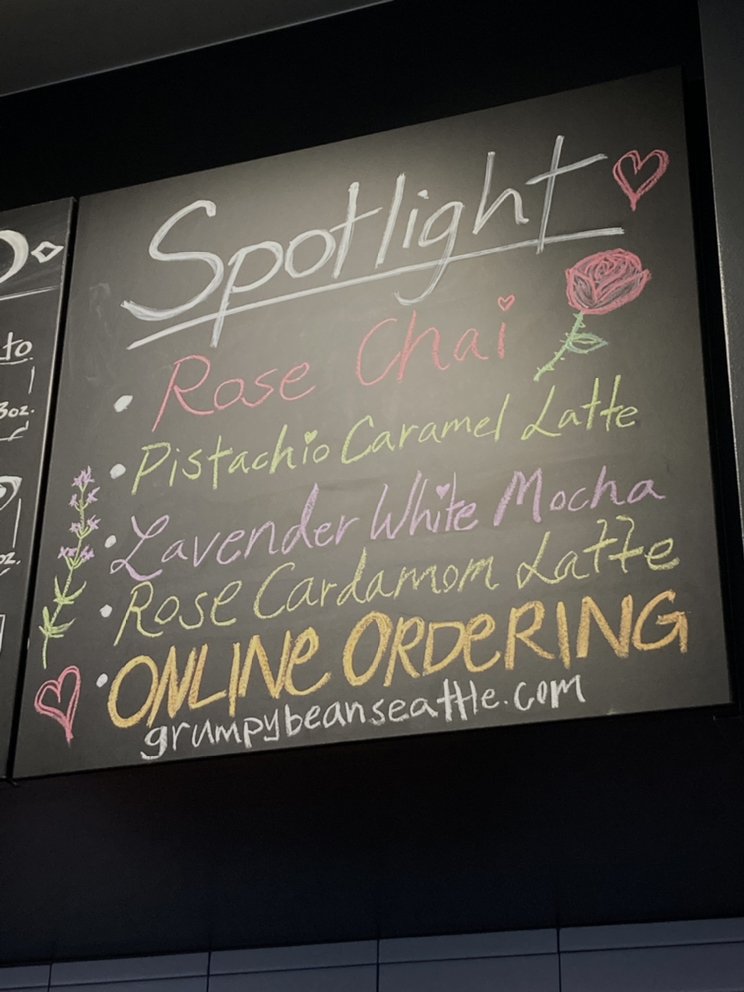 Spotlight
• Rose Chai
• Pistachio Caramel Latte
• Lavender White Mocha
• Rose Cardamom Latte
• ONLINE ORDERING
grumpybeanseattle.com
to
3oz.
oz.